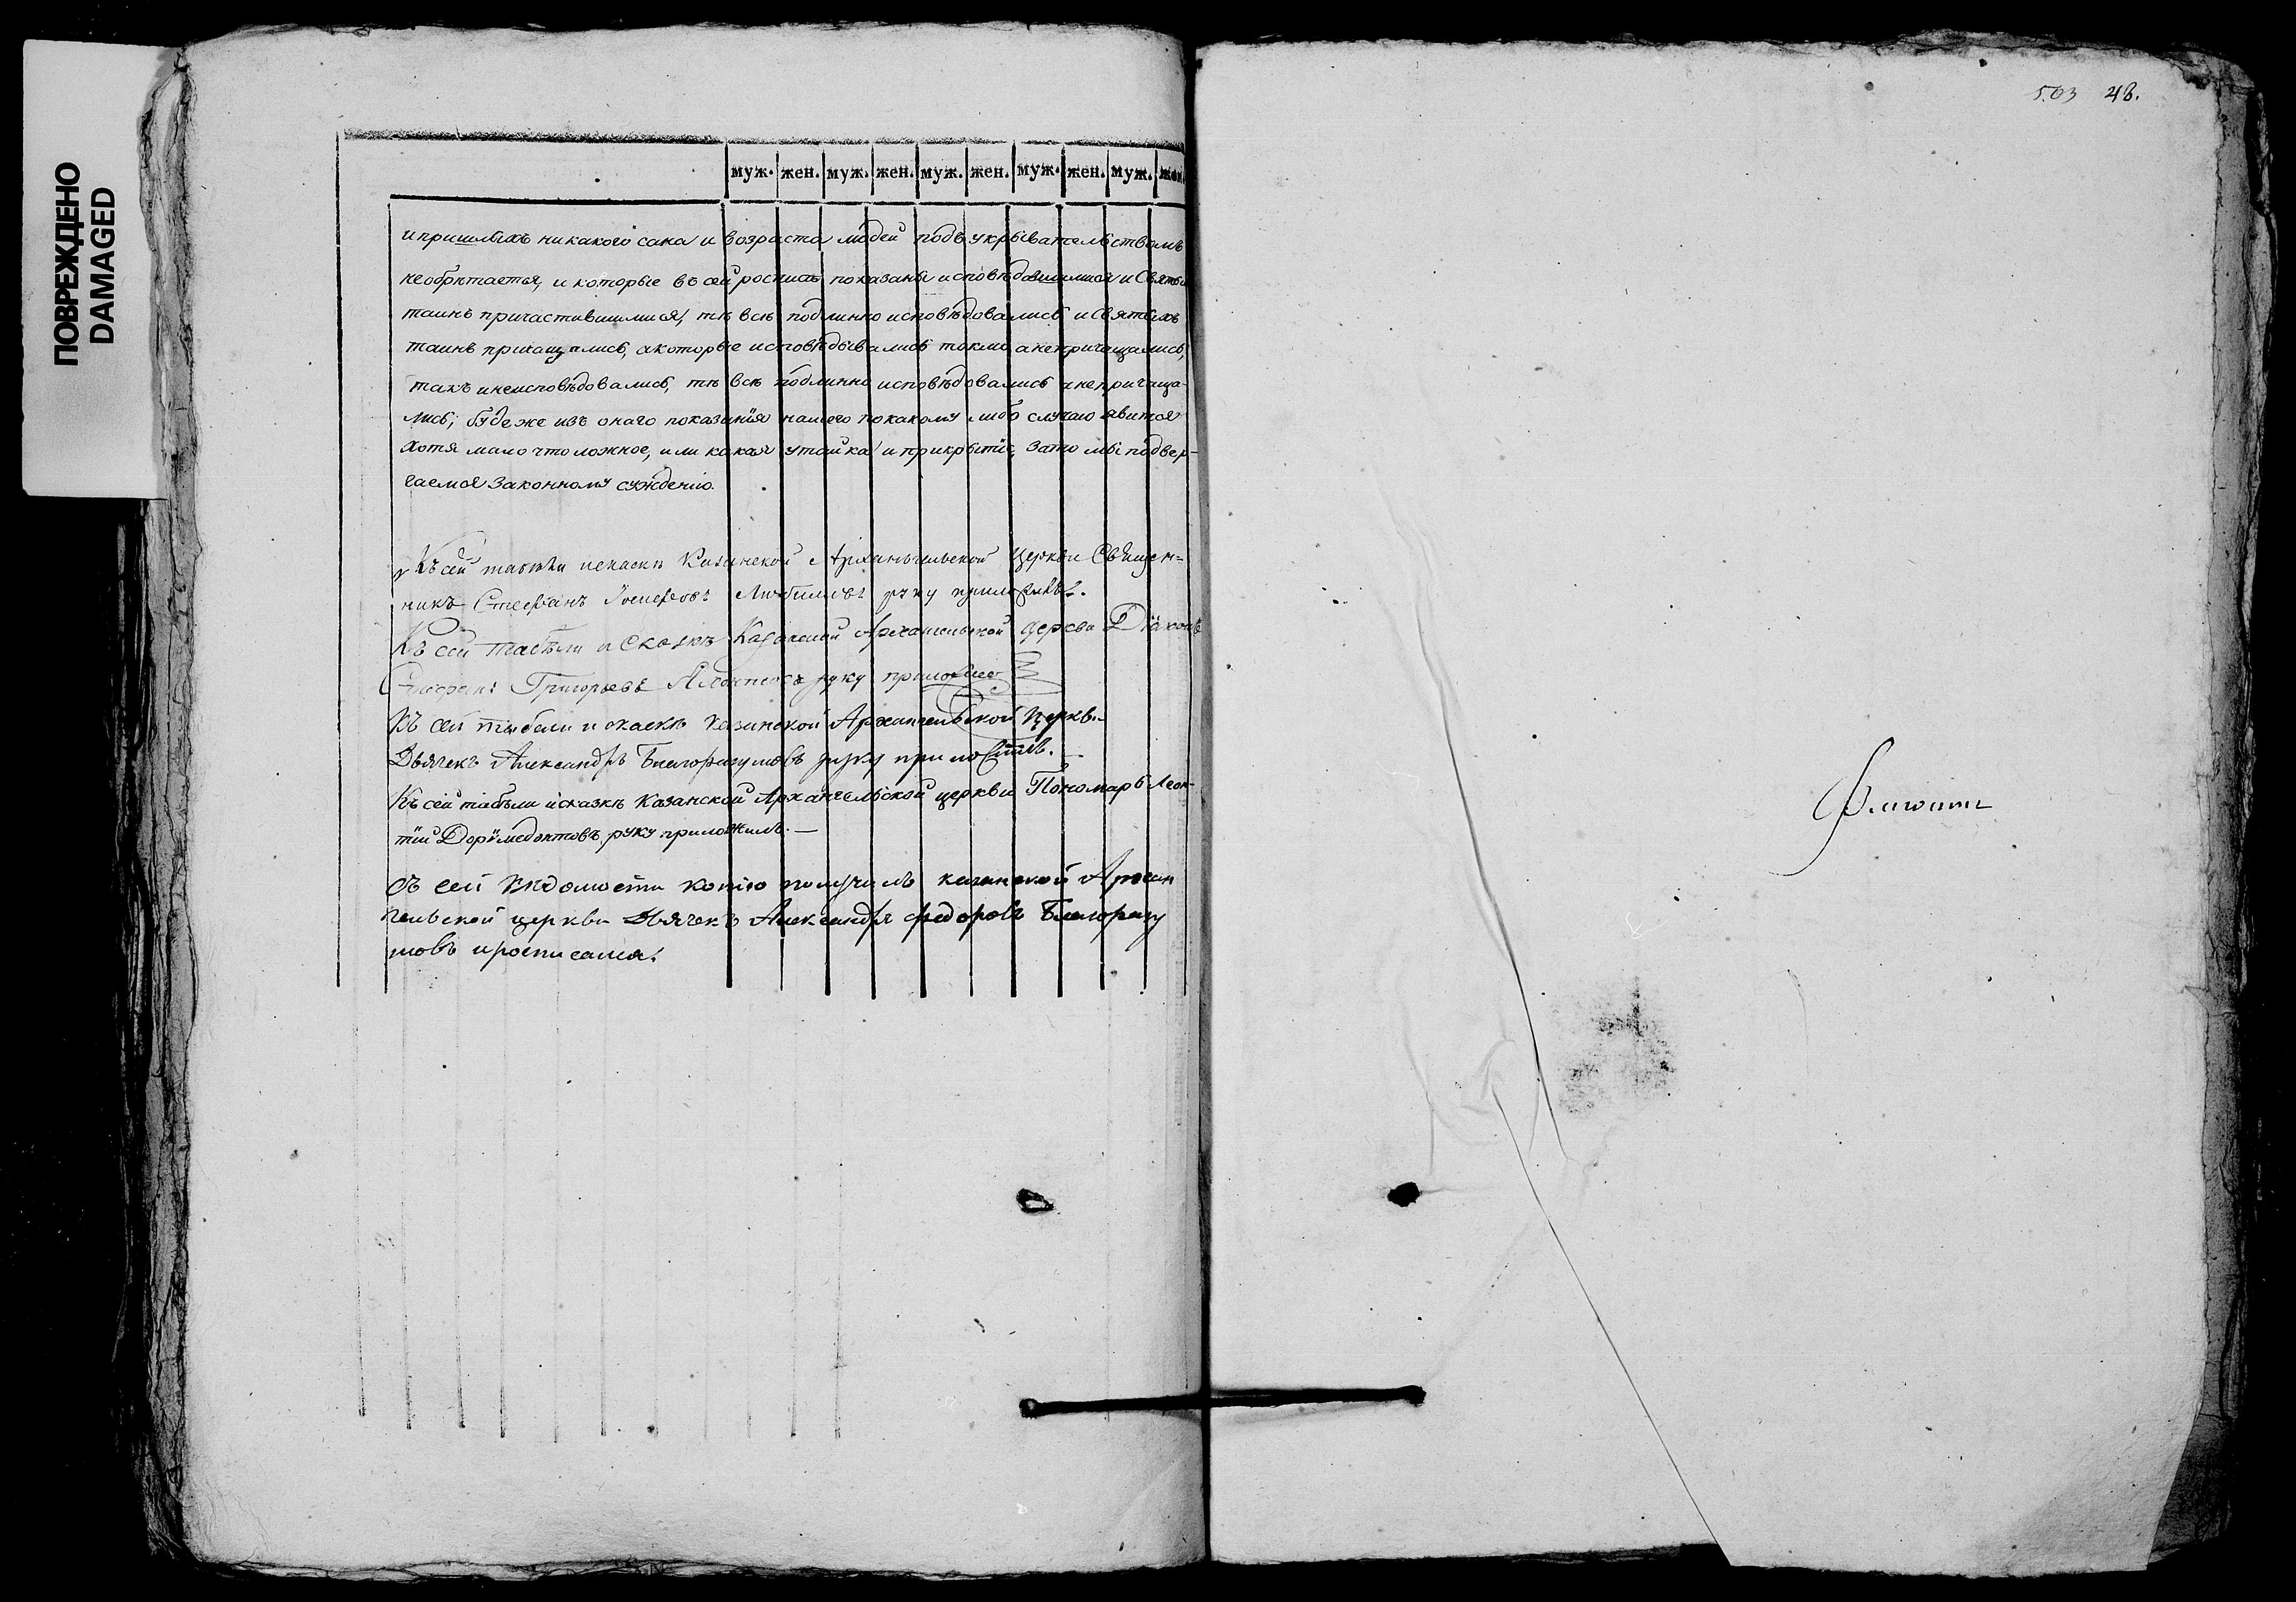 ПОВРЕЖДЕНО
DAMAGED
503 48.
муж. жен. муж. жен. муж. жен. муж. жен. муж. жен.
и пришлыхъ никакого сана и возраста людей подъ укрывательствомъ
необрѣтается, и которые въ сей росписи показаны исповѣдовшимися и Святыхъ
таинъ причастившимися, тѣ всѣ подлинно исповѣдовались и Святыхъ
таинъ прихащались, а которые исповѣдывались токмо а непричащались,
такъ и неисповѣдовались, тѣ всѣ подлинно исповѣдовались и непричаща-
лись; буде же изъ онаго показанія нашего по какому либо случаю явится
хотя мало что ложное, или какая утайка и прикрытіе, за то мы подвер-
гаемся законному сужденію.
Къ сей табели искаскѣ Казанской Архангельской Церкви Священ-
никъ Стефанъ Іосифовъ Любимовъ руку приложилъ.
Къ сей табели и сказкѣ Казанской Архангельской церкви Діаконъ
Стефанъ Григорьевъ руку приложилъ
Къ сей табели и скаскѣ Казанской Архангельской Церкви
Дьячекъ Александръ Благоразумовъ руку приложилъ.
Къ сей табѣли исказкѣ Казанской Архангельской церкви Пономарь Леон-
тій Доримедонтовъ руку приложилъ.—
Съ сей вѣдомости копію получилъ казанской Архан
гельской церкви Дьячекъ Александръ Федоровъ Благоразу
мовъ и росписался.